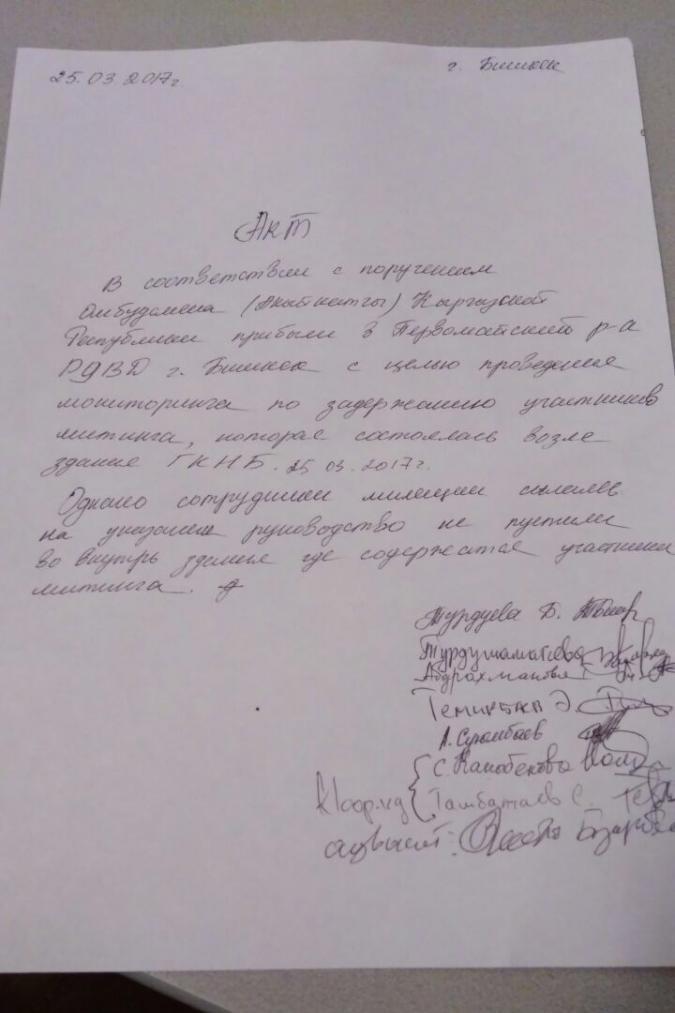 25.03.2017г. г. Бишкек
Акт
В соответствии с поручением
Омбудсмена (Акыйкатчы) Кыргызской
Республики прибыли в Первомайский р-а
РУВД г. Бишкек с целью проведения
мониторинга по задержанию участников
митинга, которая состоялась возле
здания ГКНБ. 25 03. 2017г.
Однако сотрудники милиции сылаяв
на указание руководство не пустили
во внутрь здания где содержатся участники
митинга.
Турдуева Б.
Турдушаматова
Абдрахманова
Темикбаев Э.
А. Сурамбаев
С. Канабекова
Коорд
Тамбатаев С.
адвокат: